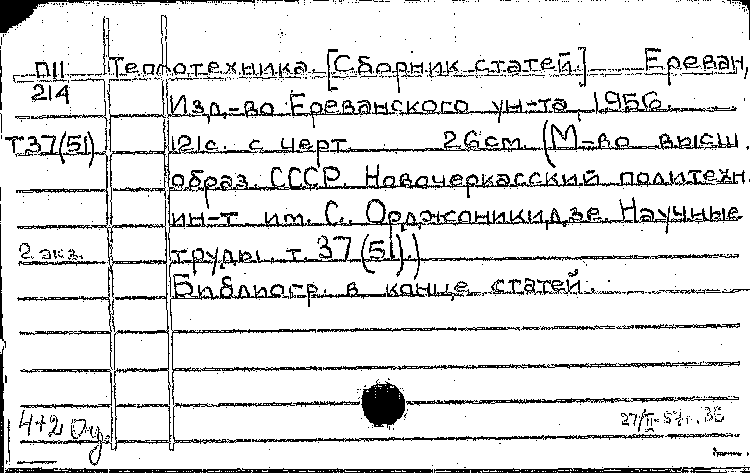 П11 Теплотехника. [Сборник статей.] Ереван,
214
Изд-во Ереванского ун-та, 1956.
Т37(51) 121с. с черт. 26см. (М-во высш.
образ. СССР. Новочеркасский политехн.
ин-т им. С. Орджоникидзе. Научные
2 экз. труды. т. 37(51).)
Библиогр. в конце статей.
4+2 Оу.
27/II-57г. ЗЕ